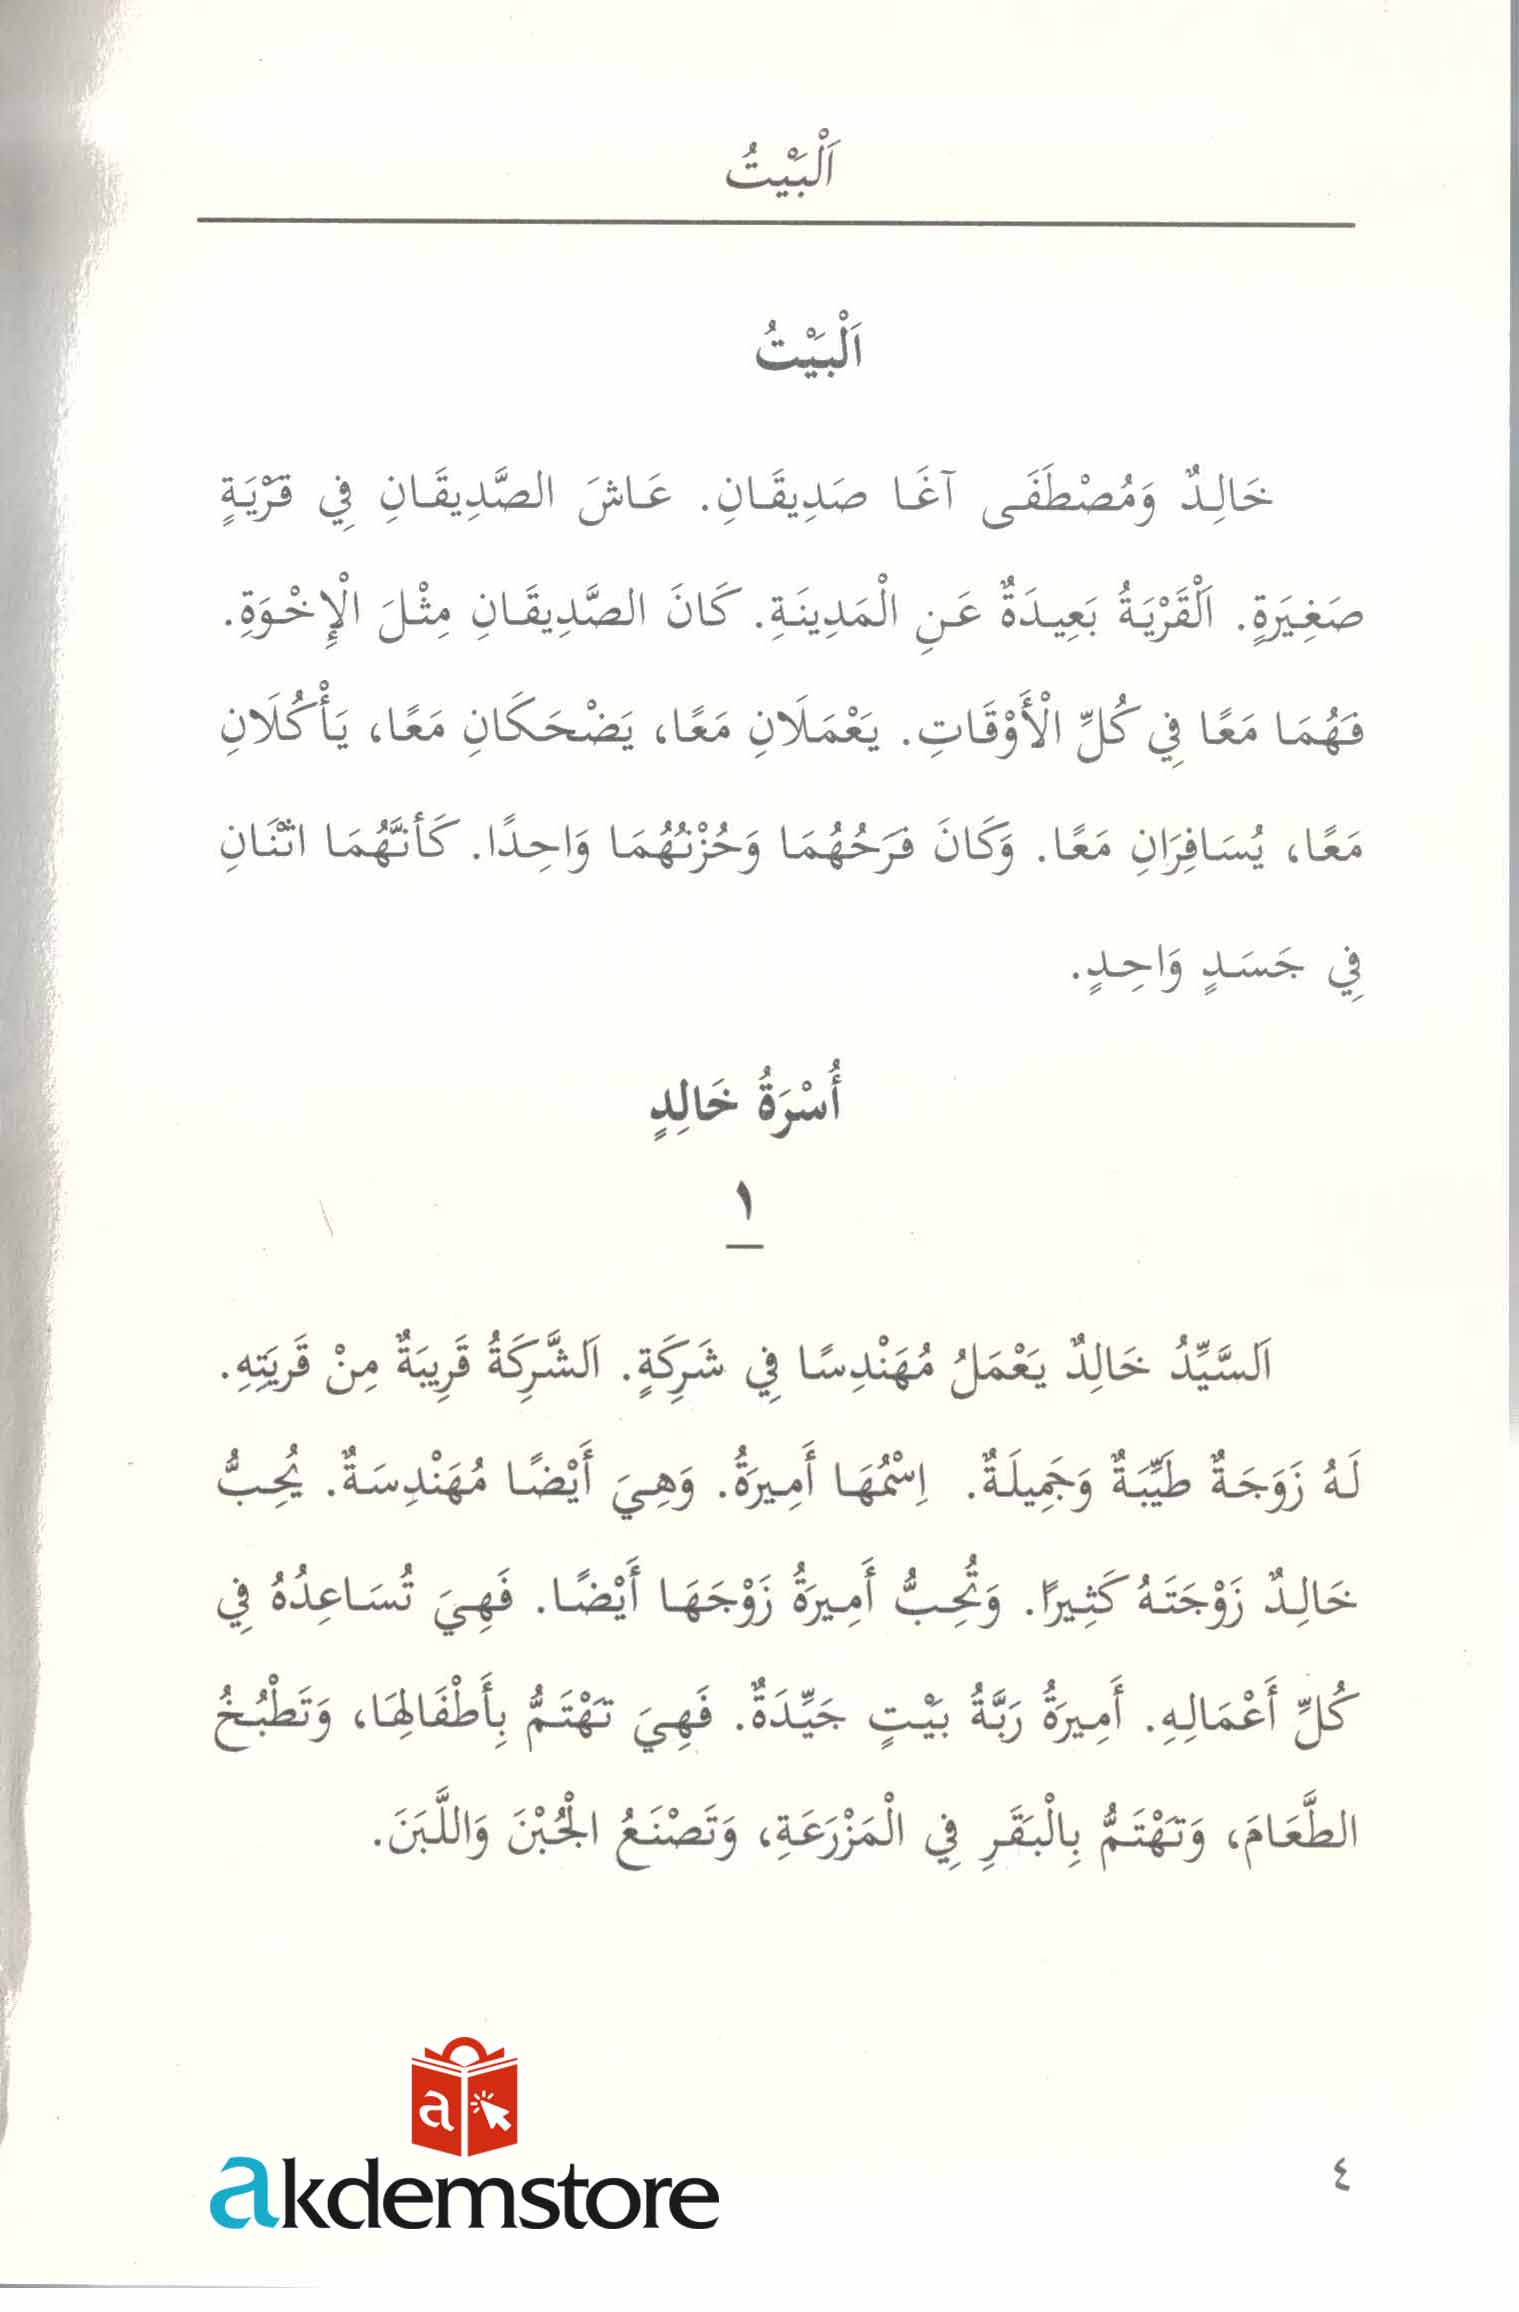 اَلْبَيْتُ
اَلْبَيْتُ
خَالِدٌ وَمُصْطَفَى آغَا صَدِيقَانِ. عَاشَ الصَّدِيقَانِ فِي قَرْيَةٍ
صَغِيَرةٍ. اَلْقَرْيَةُ بَعِيدَةٌ عَنِ الْمَدِينَةِ. كَانَ الصَّدِيقَانِ مِثْلَ الْإِخْوَةِ.
فَهُمَا مَعًا فِي كُلِّ الْأَوْقَاتِ. يَعْمَلَانِ مَعًا، يَضْحَكَانِ مَعًا، يَأْكُلَانِ
مَعًا، يُسَافِرَانِ مَعًا. وَكَانَ فَرَحُهُمَا وَحُزْنُهُمَا وَاحِدًا. كَأَنَّهُمَا اثْنَانِ
فِي جَسَدٍ وَاحِدٍ.
أُسْرَةُ خَالِدٍ
١
اَلسَّيِّدُ خَالِدٌ يَعْمَلُ مُهَنْدِسًا فِي شَرِكَةٍ. اَلشَّرِكَةُ قَرِيبَةٌ مِنْ قَرْيَتِهِ.
لَهُ زَوَجَةٌ طَيِّبَةٌ وَجَمِيلَةٌ. اِسْمُهَا أَمِيرَةُ. وَهِيَ أَيْضًا مُهَنْدِسَةٌ. يُحِبُّ
خَالِدٌ زَوْجَتَهُ كَثِيرًا. وَتُحِبُّ أَمِيرَةُ زَوْجَهَا أَيْضًا. فَهِيَ تُسَاعِدُهُ فِي
كُلِّ أَعْمَالِهِ. أَمِيرَةُ رَبَّةُ بَيْتٍ جَيِّدَةٌ. فَهِيَ تَهْتَمُّ بِأَطْفَالِهَا، وَتَطْبُخُ
الطَّعَامَ، وَتَهْتَمُّ بِالْبَقَرِ فِي الْمَزْرَعَةِ، وَتَصْنَعُ الْجُبْنَ وَاللَّبَنَ.
a
akdemstore
٤